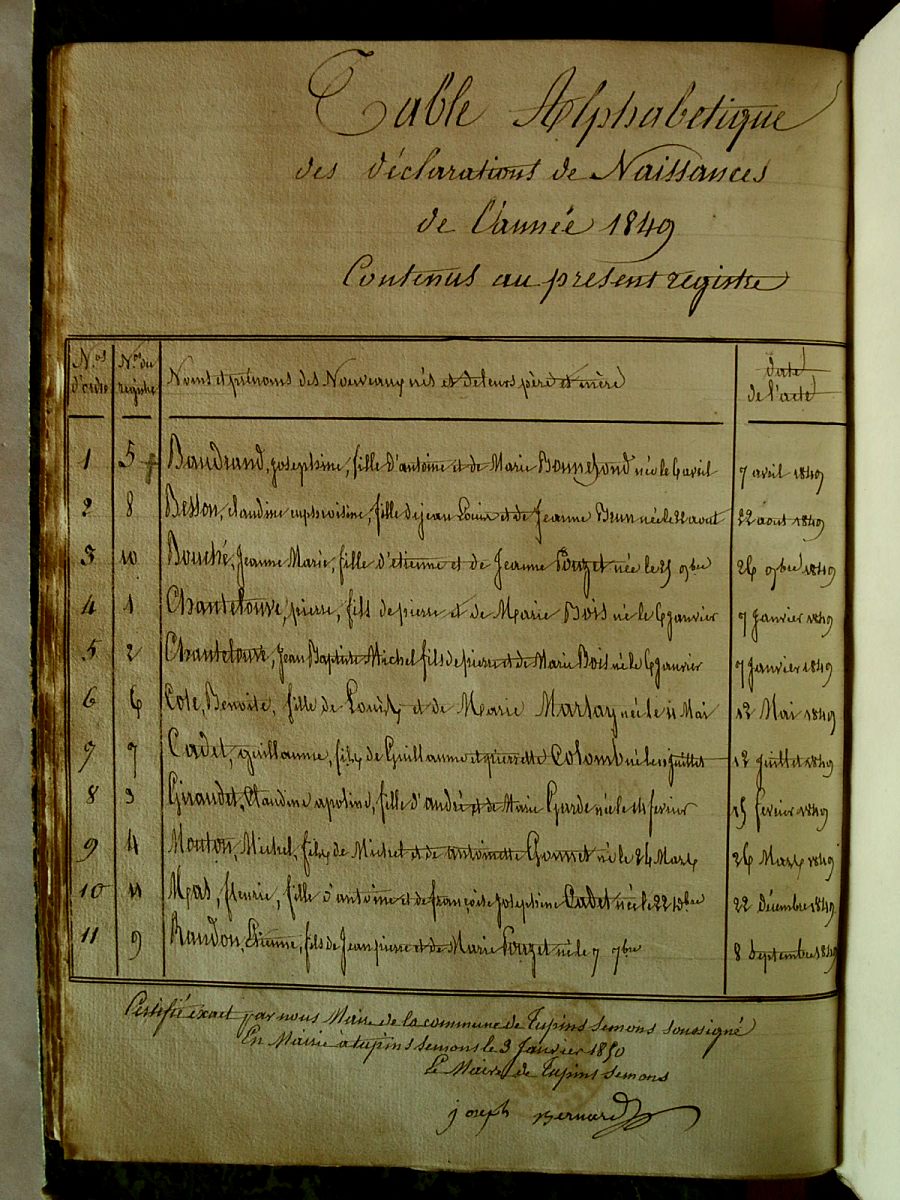 Table Alphabetique
des déclarations de Naissances
de l'année 1849
Contenus au present registre
N.os d'ordre N.os du registre Noms et prénoms des Nouveaux nés et de leurs père et mère date de l'acte
1 5 Baudrand, josephine, fille d'antoine et de Marie Bonnefond née le 6 avril 7 avril 1849
2 8 Besson, claudine euphroisine, fille de jean Louis et de Jeanne Brun née le 22 aout 22 aout 1849
3 10 Bouché, Jeanne Marie, fille d'etienne et de Jeanne Pouzet née le 25 9bre 26 9bre 1849
4 1 Chantelouve, pierre, fils de pierre et de Marie Bois né le 6 janvier 7 Janvier 1849
5 2 Chantelouve, Jean Baptiste Michel fils de pierre et de Marie Bois né le 6 Janvier 7 Janvier 1849
6 6 Cote, Benoite, fille de Louis et de Marie Marlay née le 11 Mai 12 Mai 1849
7 7 Cadet, guillaume, fils de Guillaume et pierrette Colomb né le juillet 12 Juillet 1849
8 3 Giraudet, Claudine apoline, fille d'andré et de Marie Garde née le 14 fevrier 15 fevrier 1849
9 4 Mouton, Michel, fils de Michel et de antoinette Gonnet né le 24 Mars 26 Mars 1849
10 11 Mas, fleurie, fille d'antoine et de françoise Josephine Cadet née le 22 10bre 22 Décembre 1849
11 9 Raudon, Etienne, fils de Jean pierre et de Marie Pouzet né le 7 7bre 8 Septembre 1849
Certifié exact par nous Maire de la commune de Tupins semons soussigné
En Mairie à tupins semons le 3 Janvier 1850
Le Maire de Tupins semons
joseph Bernard